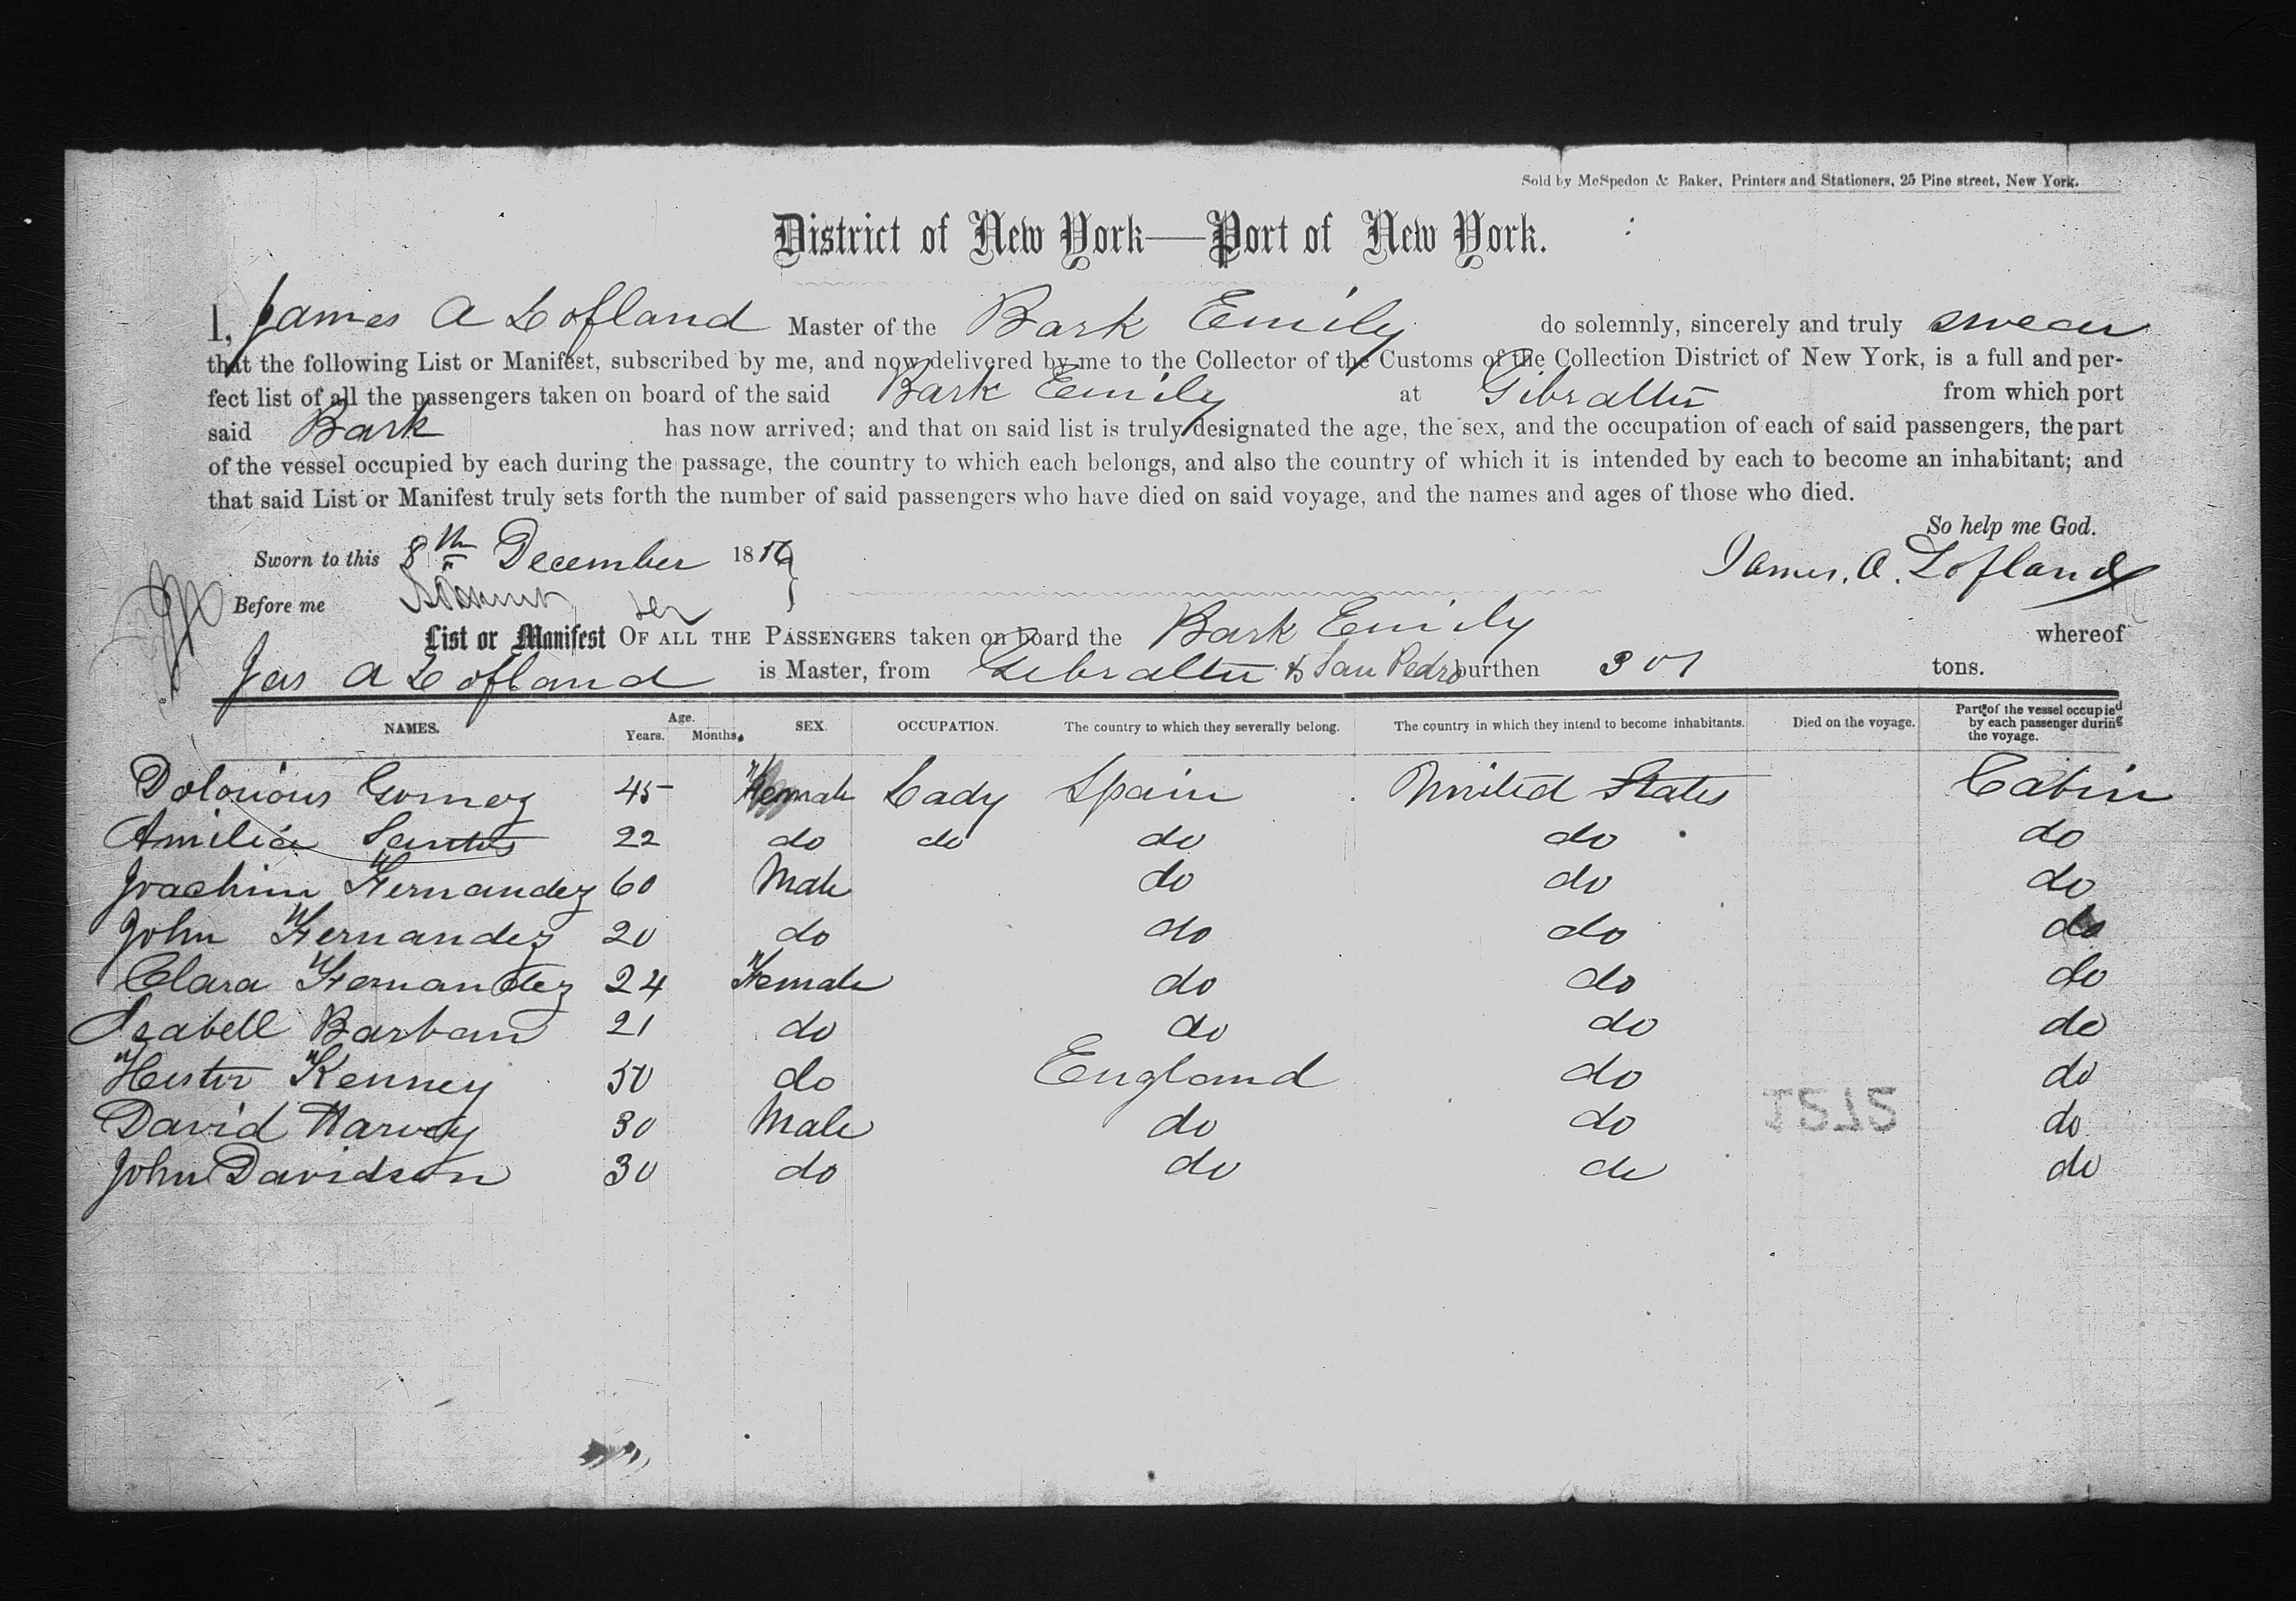 Sold by McSpedon & Baker, Printers and Stationers, 25 Pine street, New York.
District of New York—Port of New York.
I, James A Lofland Master of the Bark Emily do solemnly, sincerely and truly swear
that the following List or Manifest, subscribed by me, and now delivered by me to the Collector of the Customs of the Collection District of New York, is a full and per-
fect list of all the passengers taken on board of the said Bark Emily at Gibralter from which port
said Bark has now arrived; and that on said list is truly designated the age, the sex, and the occupation of each of said passengers, the part
of the vessel occupied by each during the passage, the country to which each belongs, and also the country of which it is intended by each to become an inhabitant; and
that said List or Manifest truly sets forth the number of said passengers who have died on said voyage, and the names and ages of those who died.
So help me God.
Sworn to this 8th December 1856 James. A. Lofland
Before me
List or Manifest OF ALL THE PASSENGERS taken on board the Bark Emily whereof
Jas A Lofland is Master, from Gibralter & San Pedro burthen 301 tons.
NAMES. Age. Years. Months. SEX. OCCUPATION. The country to which they severally belong. The country in which they intend to become inhabitants. Died on the voyage. Part of the vessel occupied by each passenger during the voyage.
Dolorious Gomez 45 Female Lady Spain United States Cabin
Amilia Santos 22 do do do do do
Joachim Fernandez 60 Male do do do
John Fernandez 20 do do do do
Clara Fernandez 24 Female do do do
Isabell Barban 21 do do do do
Hester Kenney 50 do England do do
David Harvey 30 Male do do do
John Davidson 30 do do do do